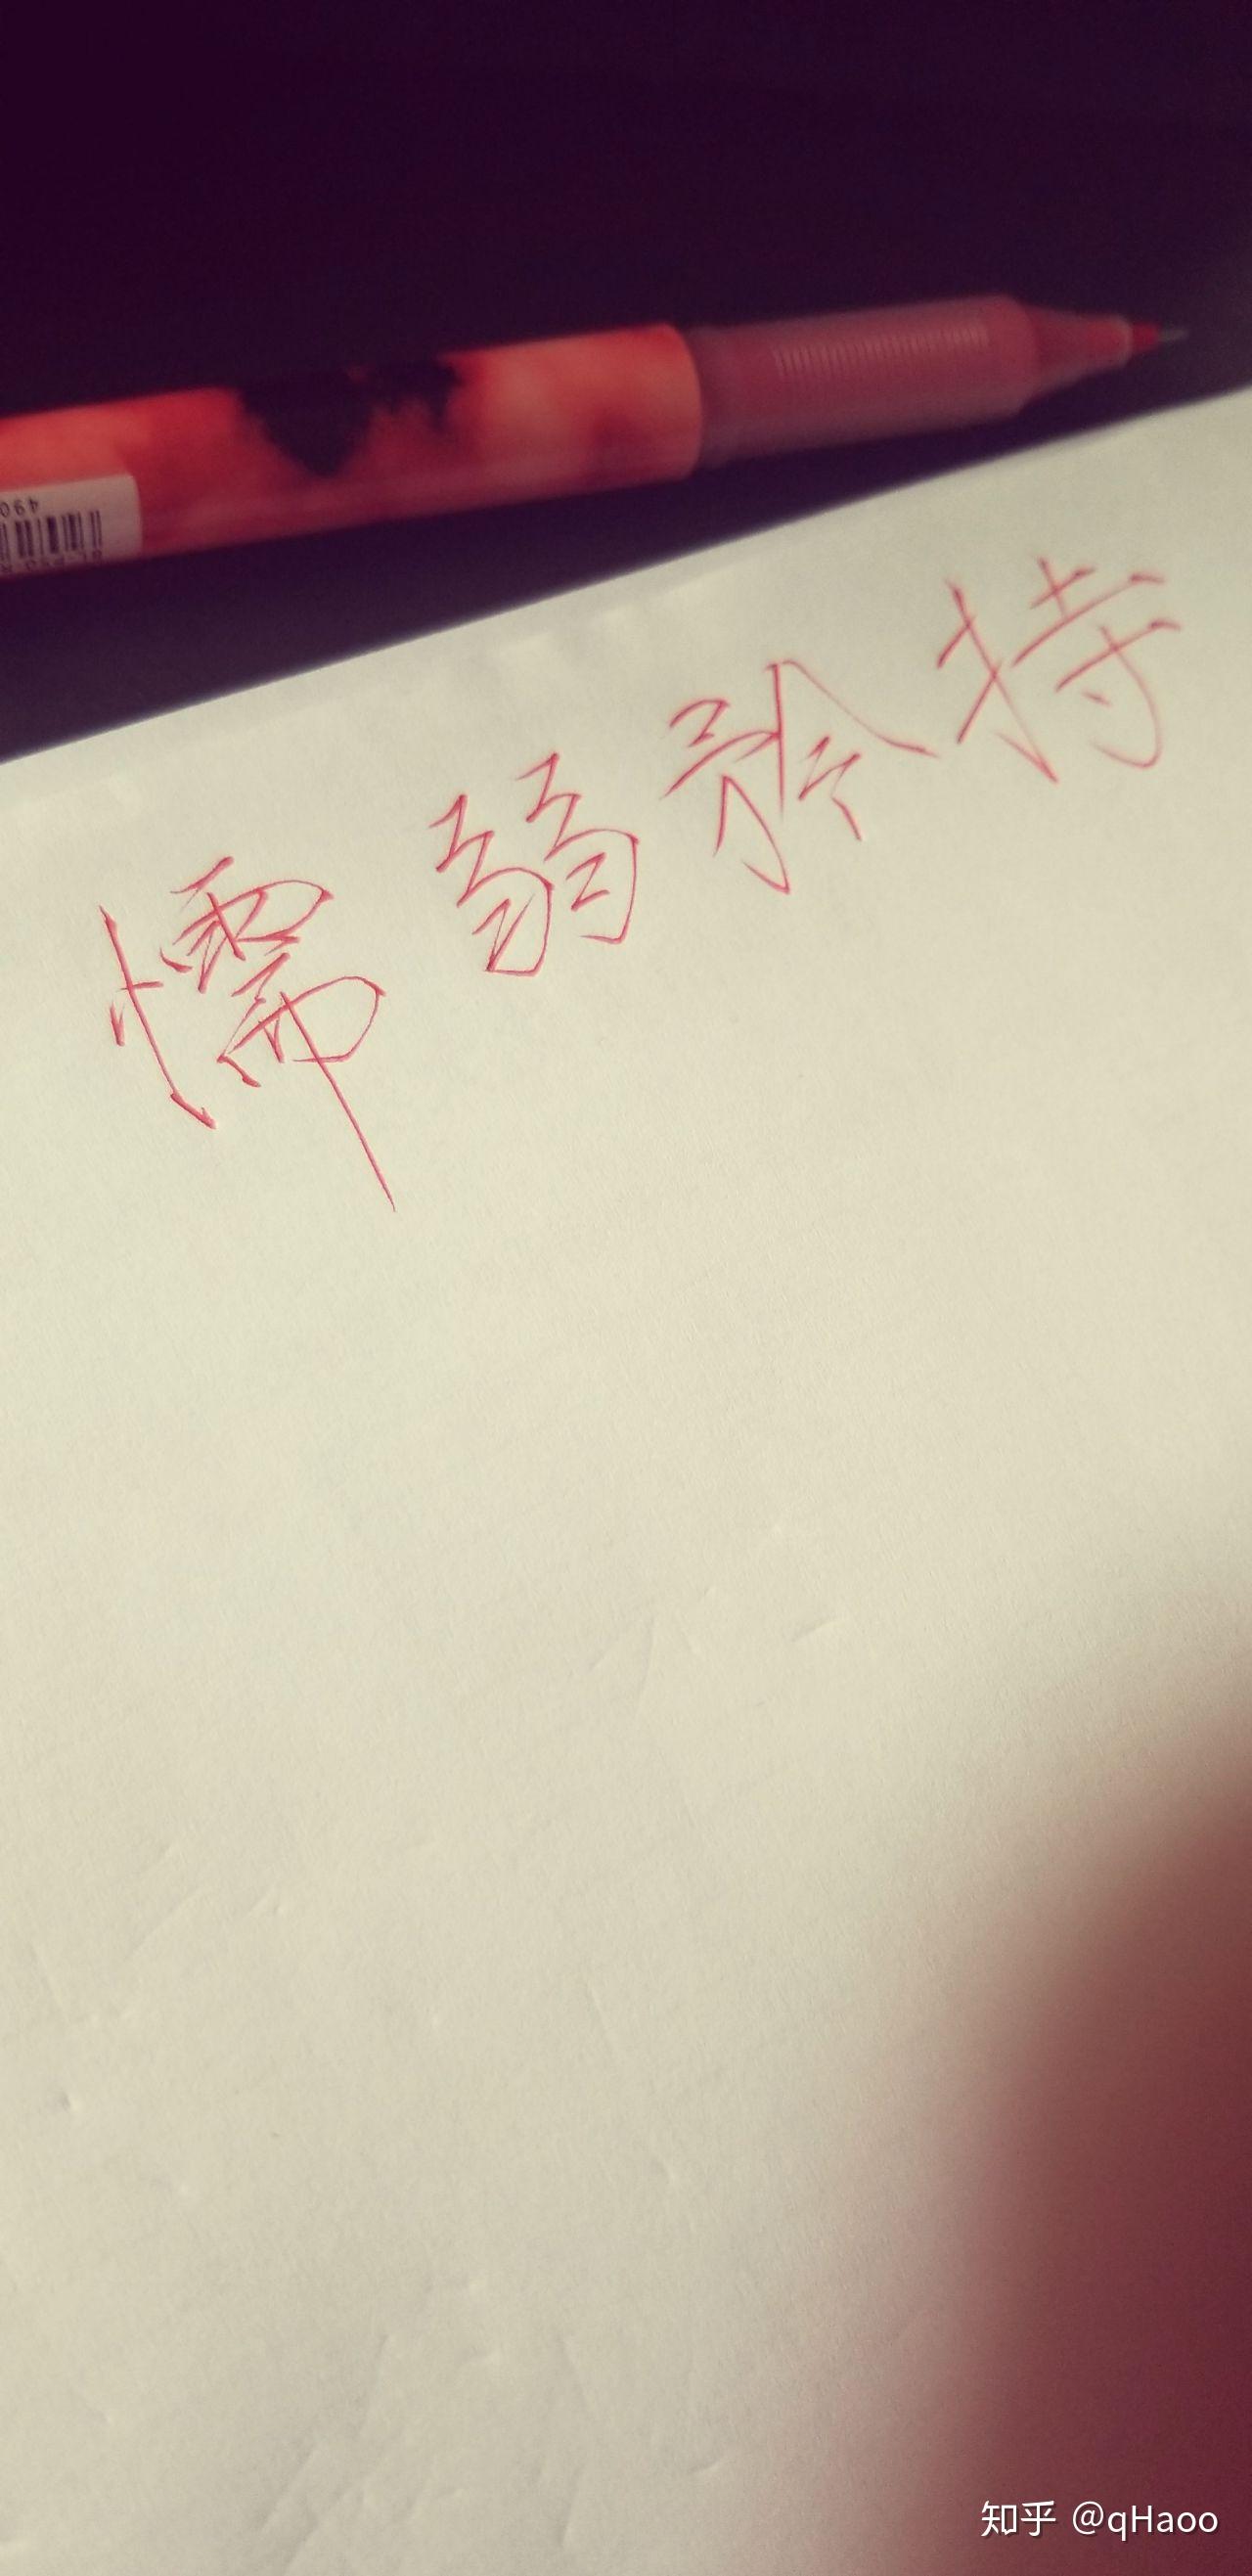 490
懦弱矜持
知乎 @qHaoo